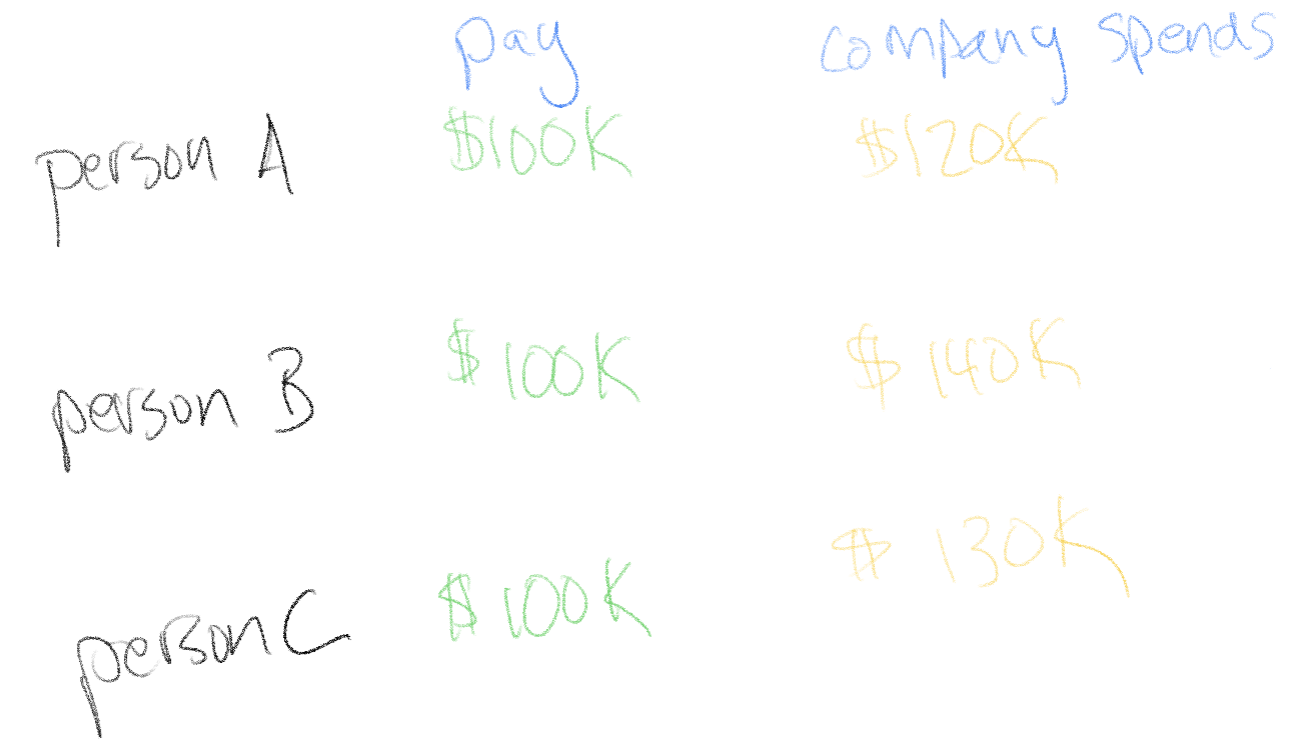 pay company spends
person A $100K $120K
person B $100K $140K
person C $100K $130K